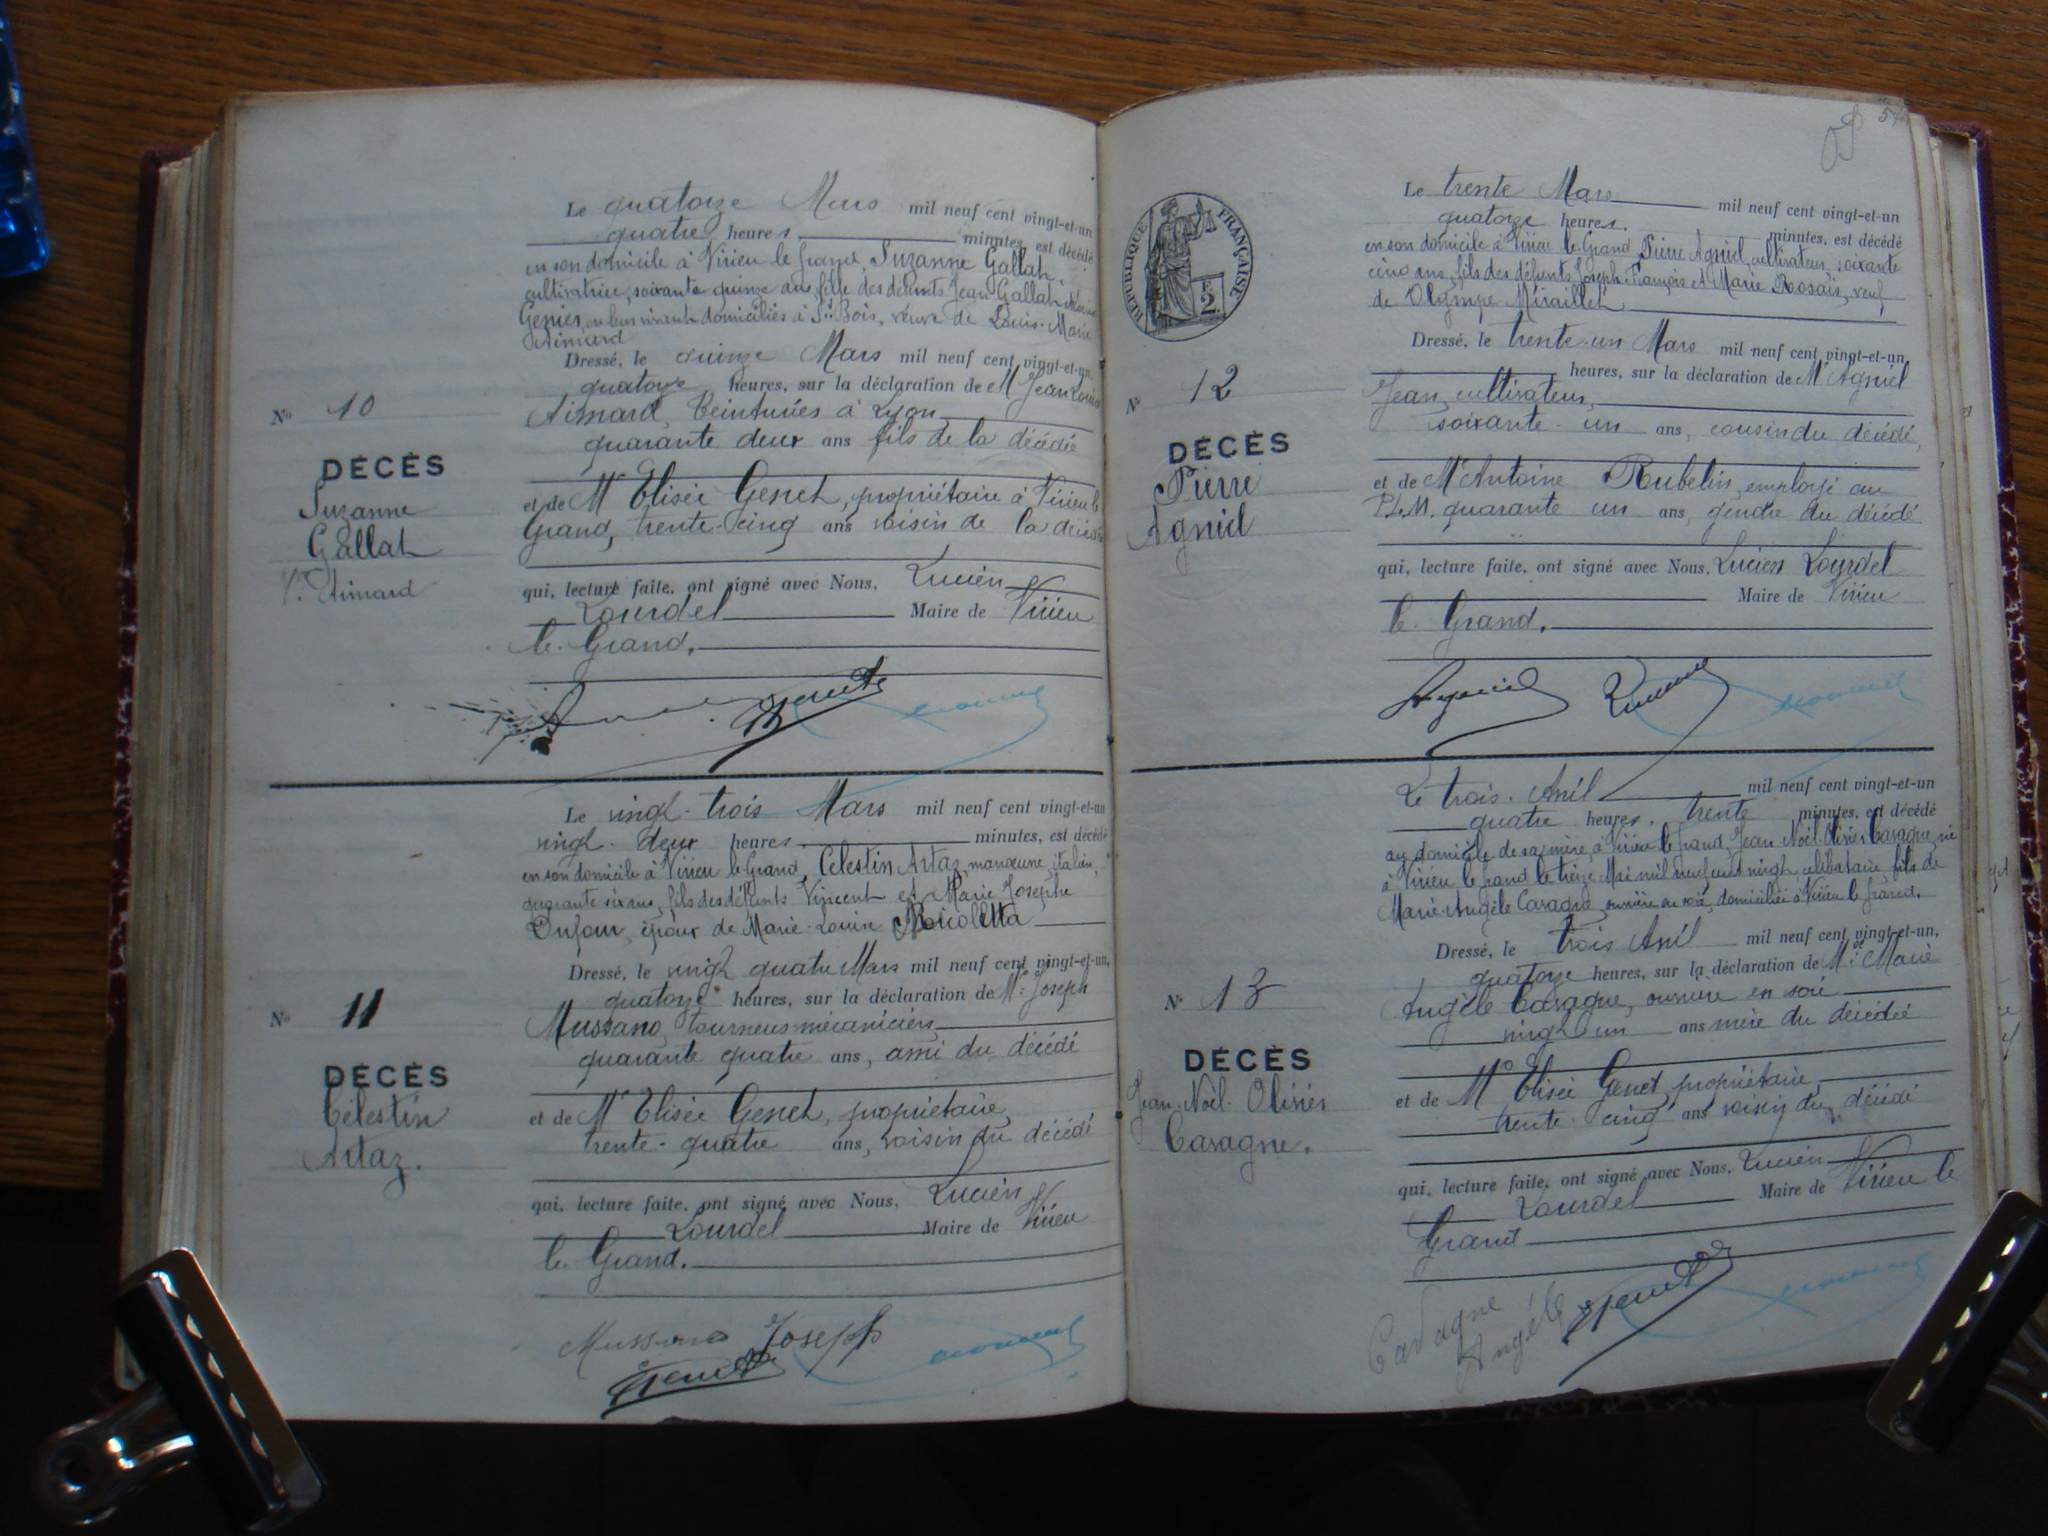 Le quatorze Mars mil neuf cent vingt-et-un
quatre heures minutes, est décédé
en son domicile à Virieu le Grand, Suzanne Gallat,
cultivatrice, soixante quinze ans, fille des défunts Jean Gallat
Genier, en leur vivant domiciliés à St Bois, veuve de Louis-Marie
Aimard
Dressé, le quinze Mars mil neuf cent vingt-et-un,
quatorze heures, sur la déclaration de Mr Jean Louis
Nº 10
Aimard, teinturier à Lyon
quarante deux ans fils de la décédée
DÉCÈS
Suzanne
Gallat
V. Aimard
et de Mr Elisée Genet, propriétaire à Virieu le
Grand, trente-cinq ans voisin de la décédée
qui, lecture faite, ont signé avec Nous, Lucien
Lourdel Maire de Virieu
le Grand.
Le vingt-trois Mars mil neuf cent vingt-et-un
vingt-deux heures minutes, est décédé
en son domicile à Virieu le Grand, Celestin Artaz, manœuvre, italien,
quarante six ans, fils des défunts Vincent et Marie Josephe
Dufour, époux de Marie-Louise Nicoletta
Dressé, le vingt quatre Mars mil neuf cent vingt-et-un,
quatorze heures, sur la déclaration de Mr Joseph
Nº 11
Mussano, tourneur-mécanicien
quarante quatre ans, ami du décédé
DÉCÈS
Célestin
Artaz.
et de Mr Elisée Genet, propriétaire,
trente-quatre ans, voisin du décédé
qui, lecture faite, ont signé avec Nous, Lucien
Lourdel Maire de Virieu
le Grand.
Mussano Joseph
EGenet
RÉPUBLIQUE FRANÇAISE
F.
2
Le trente Mars mil neuf cent vingt-et-un
quatorze heures, minutes, est décédé
en son domicile à Virieu le Grand Pierre Agniel, cultivateur, soixante
cinq ans, fils des défunts Joseph-François et Marie Rosais, veuf
de Olympe Miraillet
Dressé, le trente-un Mars mil neuf cent vingt-et-un,
heures, sur la déclaration de Mr Agniel
Nº 12
Jean, cultivateur,
soixante-un ans, cousin du décédé,
DÉCÈS
Pierre
Agniel
et de Mr Antoine Rubelin, employé au
P.L.M. quarante un ans, gendre du décédé
qui, lecture faite, ont signé avec Nous, Lucien Lourdel
Maire de Virieu
le Grand.
Agniel
Le trois Avril mil neuf cent vingt-et-un
quatre heures, trente minutes, est décédé
au domicile de sa mère, à Virieu le Grand, Jean-Noël-Olivier Cavagne, né
à Virieu le Grand le treize Mai mil neuf cent vingt, célibataire, fils de
Marie-Angèle Cavagne, ouvrière en soie, domiciliée à Virieu le Grand.
Dressé, le trois Avril mil neuf cent vingt-et-un,
quatorze heures, sur la déclaration de Marie
Nº 13
Angèle Cavagne, ouvrière en soie
vingt un ans mère du décédé
DÉCÈS
Jean-Noël-Olivier
Cavagne.
et de Mr Elisée Genet, propriétaire,
trente-cinq ans voisin du décédé
qui, lecture faite, ont signé avec Nous, Lucien
Lourdel Maire de Virieu le
Grand
Cavagne
Angéle EGenet